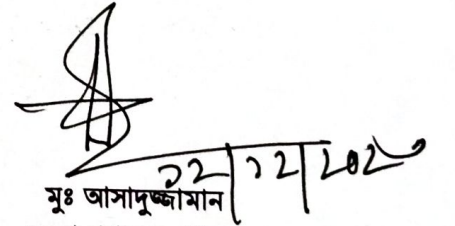 ১২|১২|২০২৩
মুঃ আসাদুজ্জামান